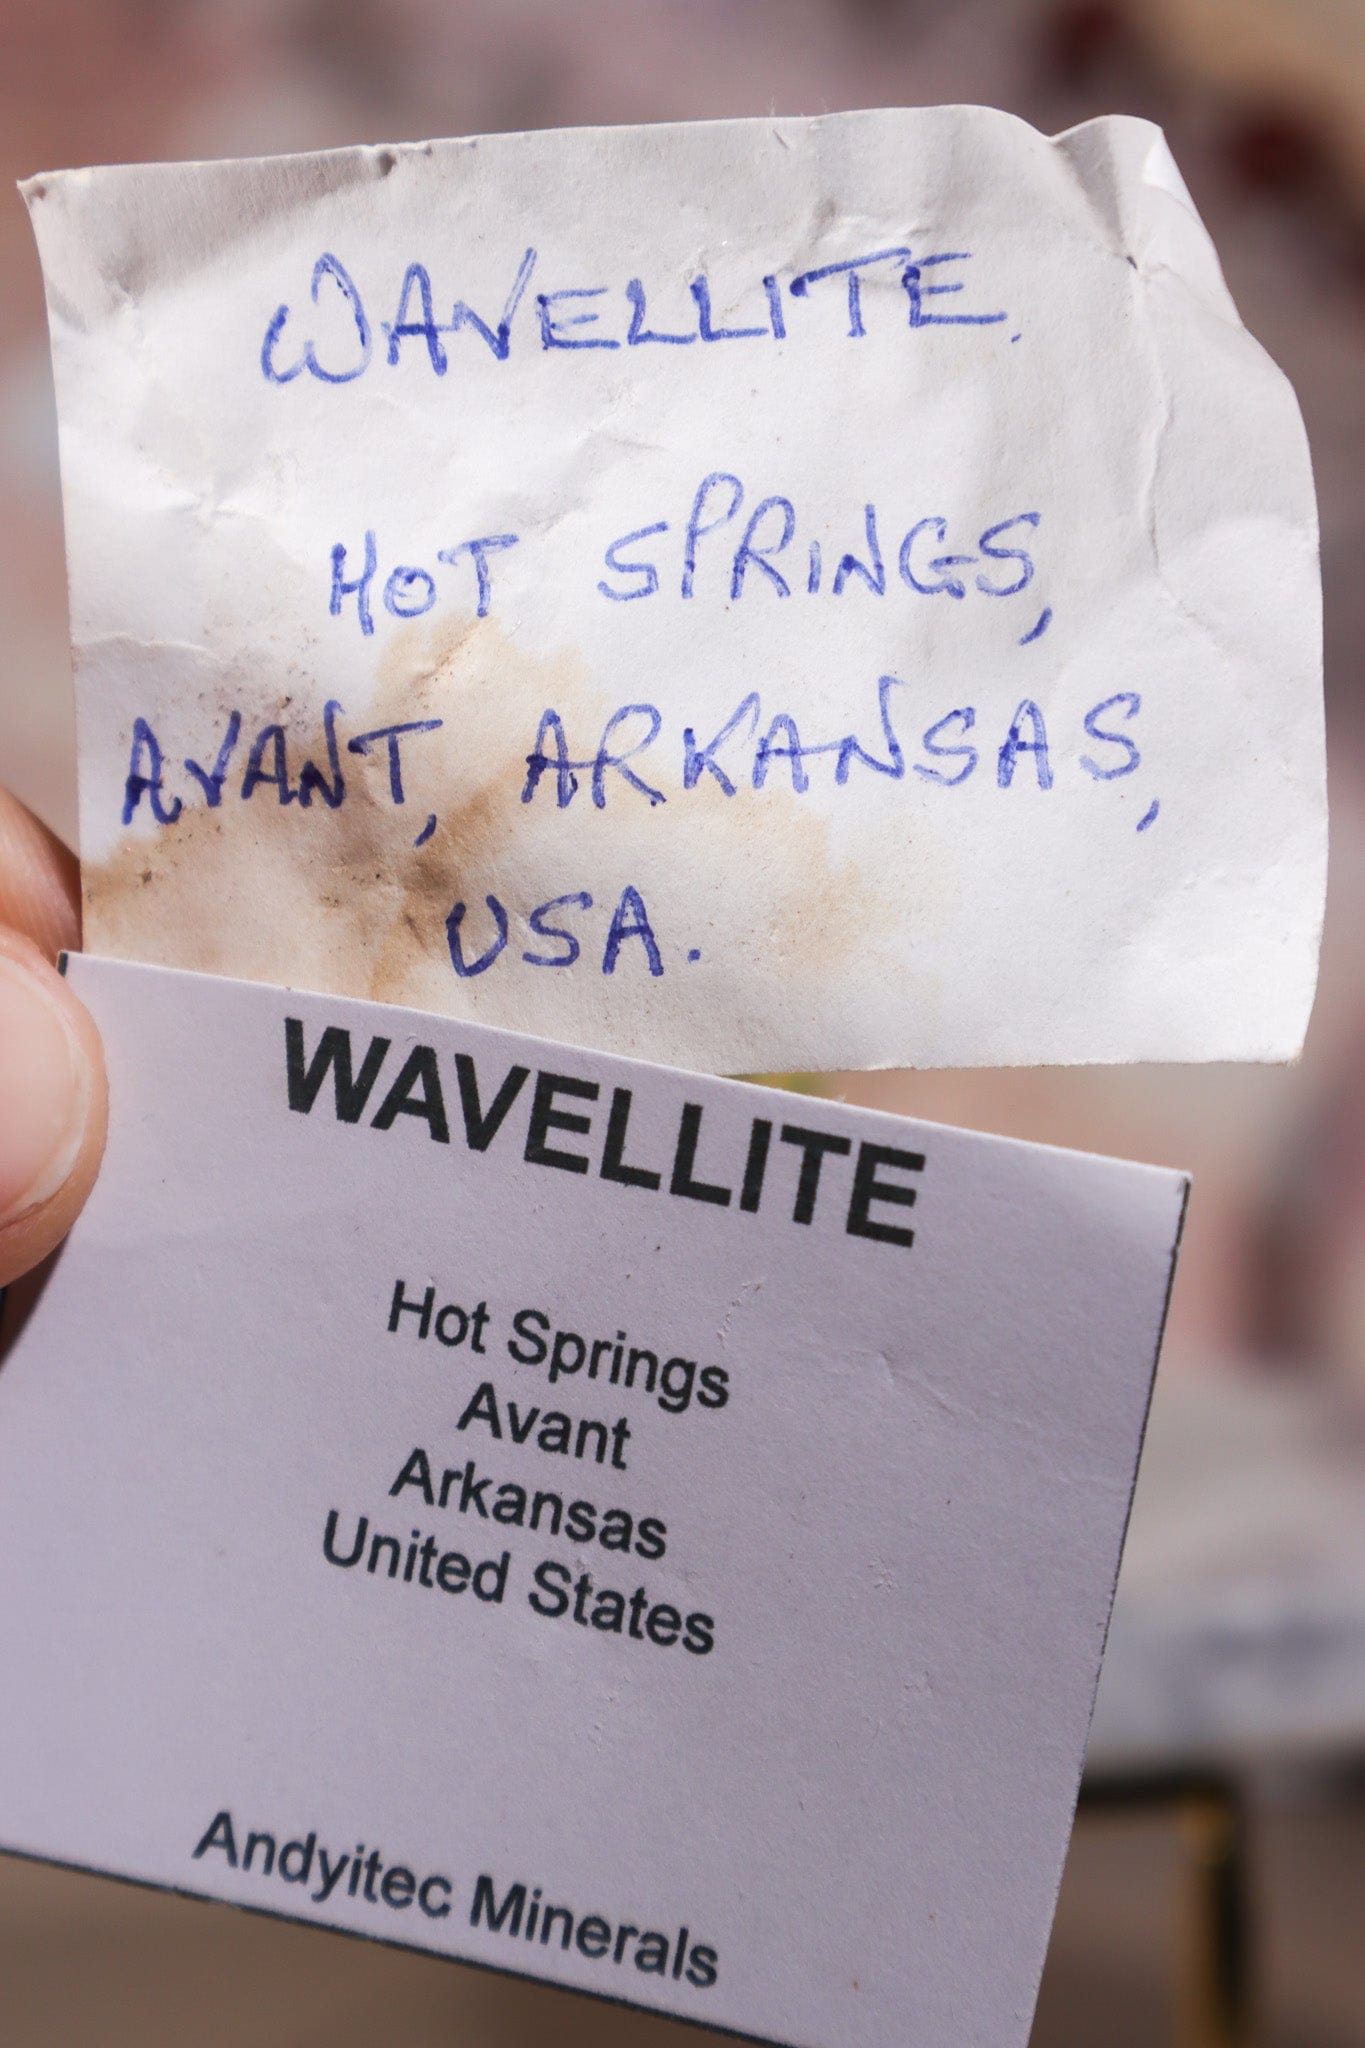 WAVELLITE.
HOT SPRINGS,
AVANT, ARKANSAS,
USA.
WAVELLITE
Hot Springs
Avant
Arkansas
United States
Andyitec Minerals